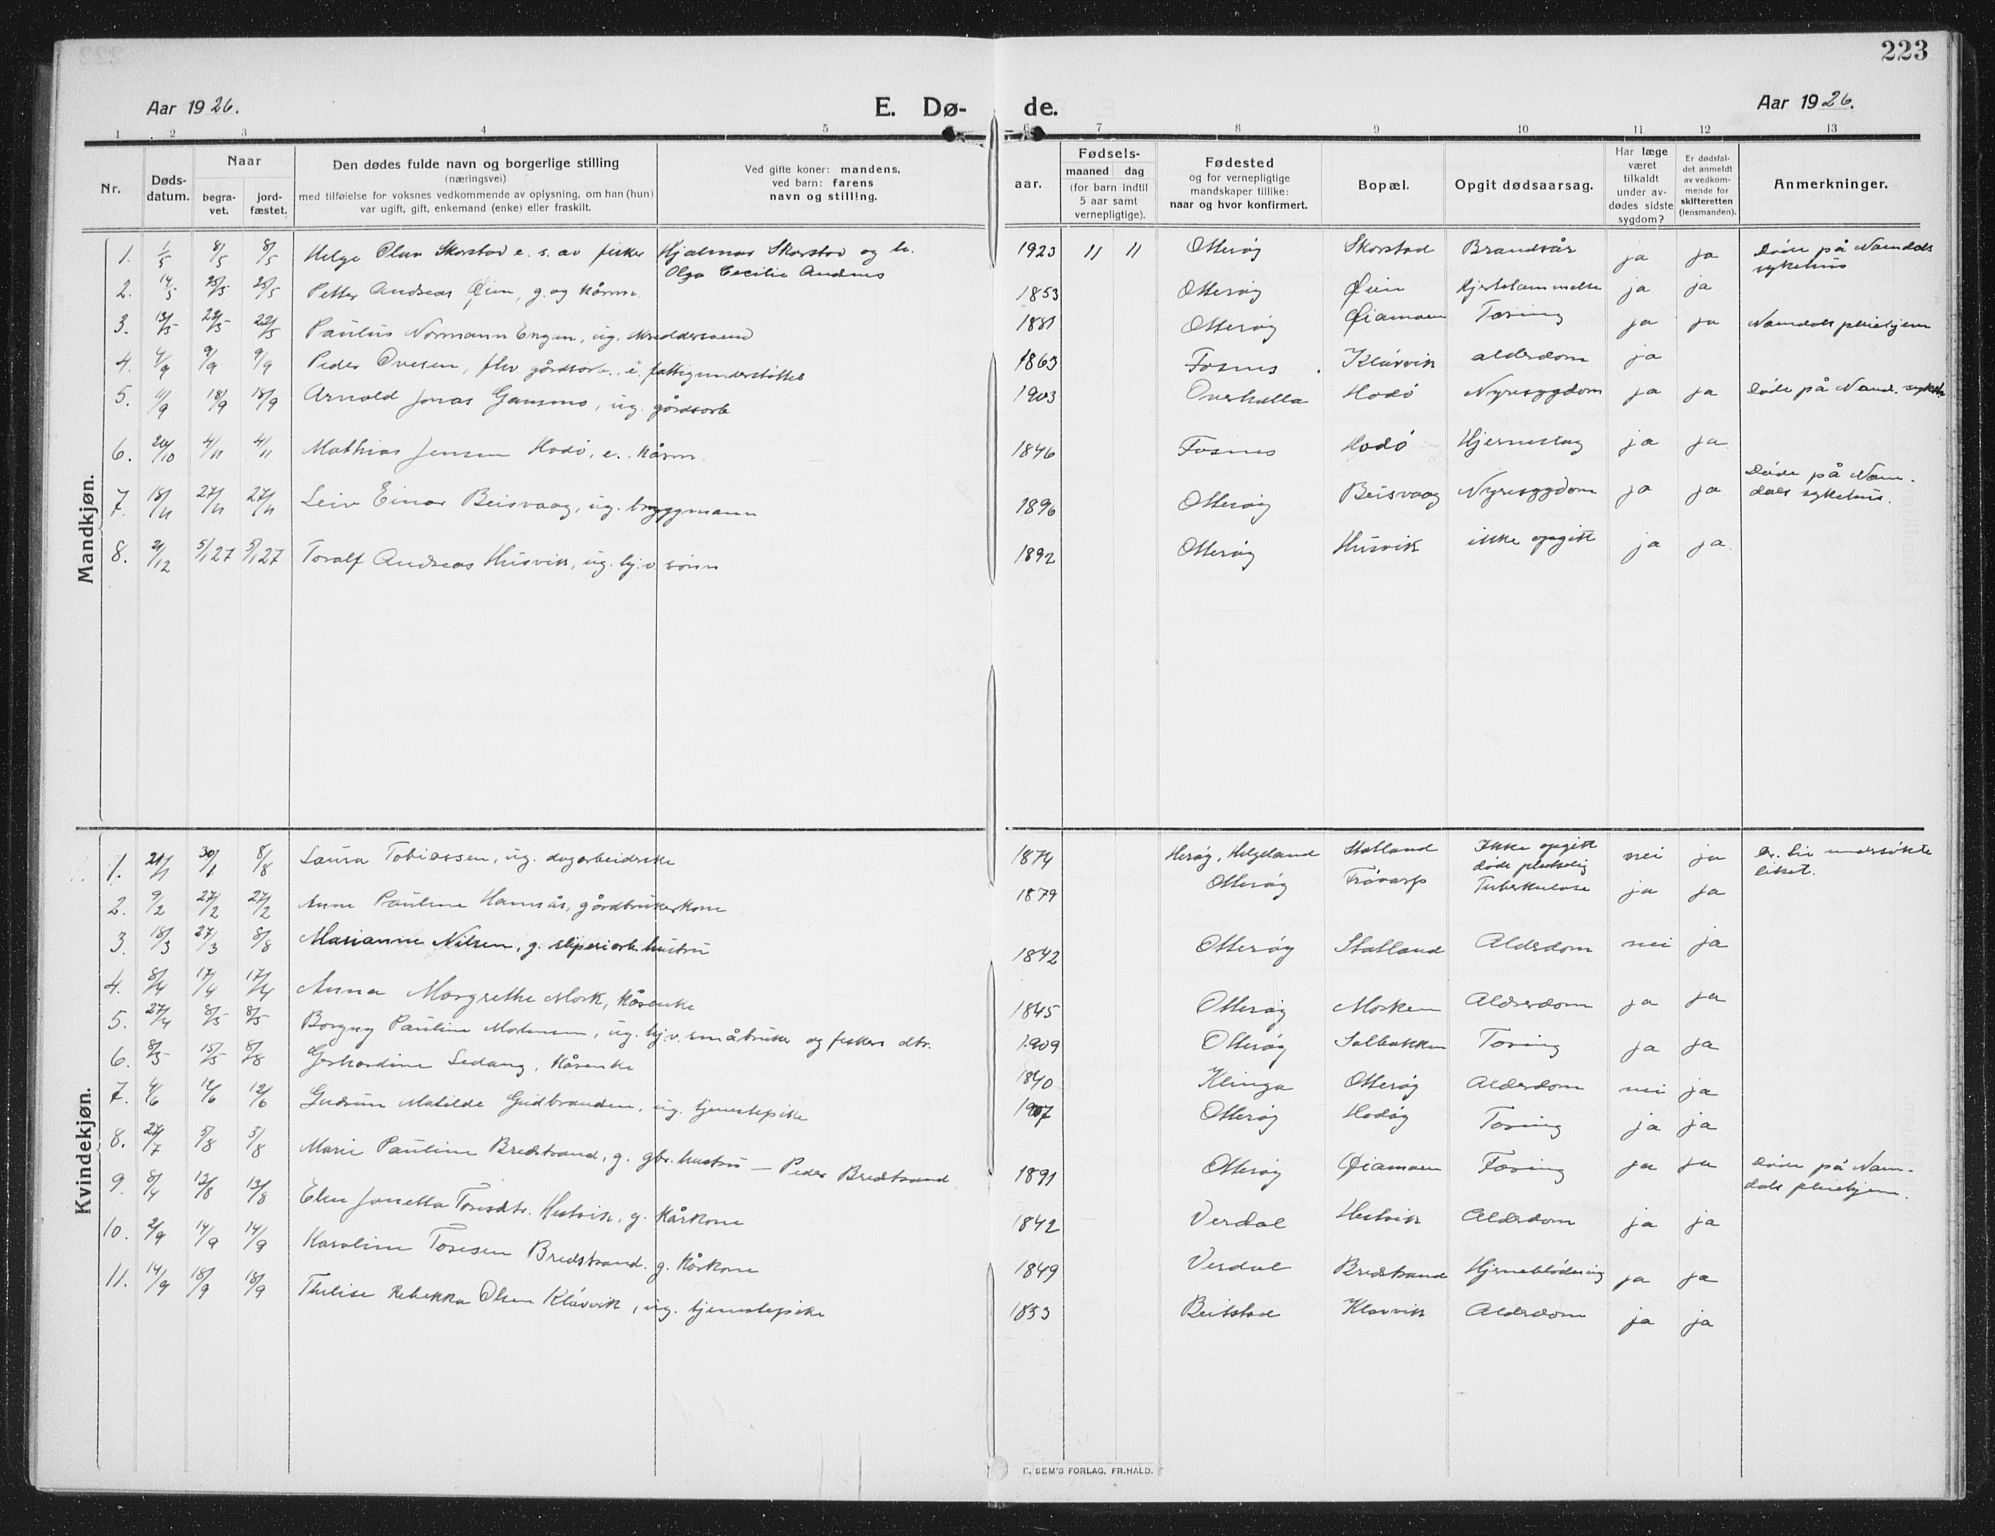 223
Aar 1926. E. Dø- de. Aar 1926.
1 2 3 4 5 6 7 8 9 10 11 12 13
Nr.
Døds-
datum.
Naar
begra-
vet.
jord-
fæstet.
Den dødes fulde navn og borgerlige stilling
(næringsvei)
med tilføielse for voksnes vedkommende av oplysning, om han (hun)
var ugift, gift, enkemand (enke) eller fraskilt.
Ved gifte koner: mandens,
ved barn: farens
navn og stilling.
aar.
Fødsels-
maaned dag
(for barn indtil
5 aar samt
vernepligtige).
Fødested
og for vernepligtige
mandskaper tillike:
naar og hvor konfirmert.
Bopæl.
Opgit dødsaarsag.
Har læge
været
tilkaldt
under av-
dødes sidste
sygdom?
Er dødsfal-
det anmeldt
av vedkom-
mende for
skifteretten
(lensmanden).
Anmerkninger.
Mandkjøn.
1. 1/5 8/5 8/5 Helge Olav Skorstad e. s. av fisker Hjalmar Skorstad og h. Olga Cecilie Andnes 1923 11 11 Otterøy Skorstad Brandsår ja ja Døde på Namdals sykehus
2. 14/5 25/5 25/5 Petter Andreas Øien, g. og kårm. 1853 Otterøy Øien Hjertelammelse ja ja
3. 13/5 22/5 22/5 Paulus Normann Engan, ug. skreddersvend 1881 Otterøy Øiamoen Tæring ja ja Namdals pleiehjem
4. 4/9 9/9 9/9 Peder Ovesen, flv gårdsarb., e. fattigunderstøttet 1863 Fosnes Kløvvik alderdom ja
5. 11/9 18/9 18/9 Arnold Jonas Gansmo, ug. gårdsarb 1903 Overhalla Hodø Nyresygdom ja ja Døde på Namd. sykeh
6. 20/10 4/11 4/11 Mathias Jensen Hodø, e. kårm. 1846 Fosnes Hodø Hjerneslag ja ja
7. 18/11 27/11 27/11 Leiv Einar Beisvaag, ug. bryggmann 1896 Otterøy Beisvaag Nyresygdom ja ja Døde på Nam-
dals sykehus.
8. 21/12 5/1 27 5/1 27 Toralf Andreas Husvik, ug. hj.v. sønn 1892 Otterøy Husvik ikke opgitt ja ja
Kvindekjøn.
1. 21/1 30/1 8/8 Laura Tobiassen, ug. dagarbeiderske 1874 Herøy, Helgeland Statland Ikke opgitt
døde pludselig nei ja Dr. Lie undersøkte
liket.
2. 9/2 27/2 27/2 Anne Pauline Hamnås, gårdbrukerkone 1879 Otterøy Frøvarp Tuberkulose ja ja
3. 18/3 27/3 8/8 Marianne Nilsen, g. sliperiarb. hustru 1842 Otterøy Statland Alderdom nei ja
4. 8/4 17/4 17/4 Anna Margrethe Mork, kårenke 1845 Otterøy Morken Alderdom ja ja
5. 27/4 8/5 8/5 Borgny Pauline Mortensen, ug. hj.v. småbruker og fiskers dtr. 1909 Otterøy Solbakken Tæring ja ja
6. 8/5 15/5 8/8 Gerhardine Sedang, kårenke 1840 Klinga Otterøy Alderdom nei ja
7. 4/6 12/6 12/6 Gudrun Matilde Gudbrandsen, ug. tjenestepike 1907 Otterøy Hodøy Tæring ja ja
8. 27/7 5/8 5/8 Marie Pauline Bredstrand, g. gbr. hustru — Peder Bredstrand 1891 Otterøy Øiamoen Tæring ja ja Døde på Nam-
dals pleiehjem.
9. 8/4 13/8 13/8 Elen Jonetta Toresdtr. Hestvik, g. kårkone 1842 Verdal Hestvik Alderdom ja ja
10. 2/9 14/9 14/9 Karoline Toresen Bredstrand. g. kårkone 1849 Verdal Bredstrand Hjerneblødning ja ja
11. 14/9 18/9 18/9 Thilise Rebekka Olsen Kløvvik, ug. tjenestepike 1853 Beitstad Kløvvik Alderdom ja ja
E. SEM'S FORLAG, FR.HALD.